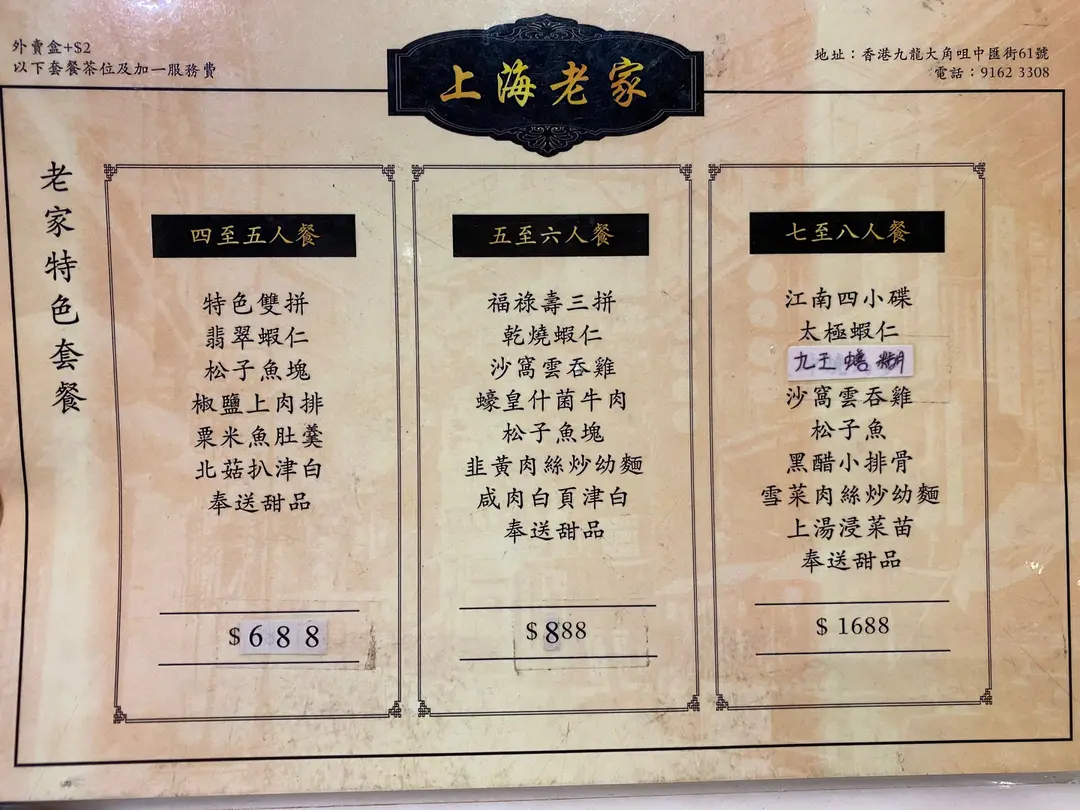 外賣盒+$2
以下套餐茶位及加一服務費
上海老家
地址：香港九龍大角咀中匯街61號
電話：9162 3308
老家特色套餐
四至五人餐
特色雙拼
翡翠蝦仁
松子魚塊
椒鹽上肉排
粟米魚肚羹
北菇扒津白
奉送甜品
$688
五至六人餐
福祿壽三拼
乾燒蝦仁
沙窩雲吞雞
蠔皇什菌牛肉
松子魚塊
韭黃肉絲炒幼麵
咸肉白頁津白
奉送甜品
$888
七至八人餐
江南四小碟
太極蝦仁
九王蟮糊
沙窩雲吞雞
松子魚
黑醋小排骨
雪菜肉絲炒幼麵
上湯浸菜苗
奉送甜品
$ 1688